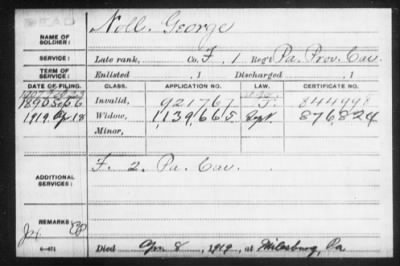 Noll, George
NAME OF SOLDIER:
SERVICE: Late rank, Co. F, 1 Reg't Pa. Prov. Cav.
TERM OF SERVICE: Enlisted , 1 Discharged , 1
DATE OF FILING. CLASS. APPLICATION NO. LAW. CERTIFICATE NO.
1890 Invalid, 921767 844998
1919 Ap 18 Widow, 1,139,665 Sept. 876,824
Minor,
F. 2. Pa. Cav.
ADDITIONAL SERVICES:
REMARKS:
Died Apr 8, 1919, at Milesburg, Pa